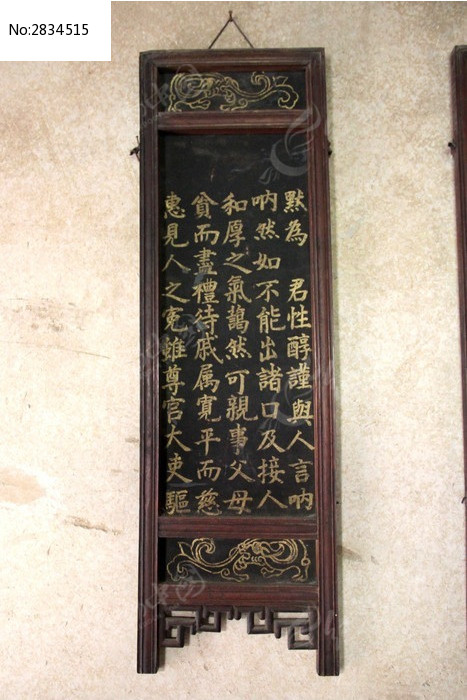 No:2834515
默為 君性醇謹與人言吶
吶然如不能出諸口及接人
和厚之氣藹然可親事父母
貧而盡禮待戚属寬平而慈
惠見人之冤雖尊官大吏驅